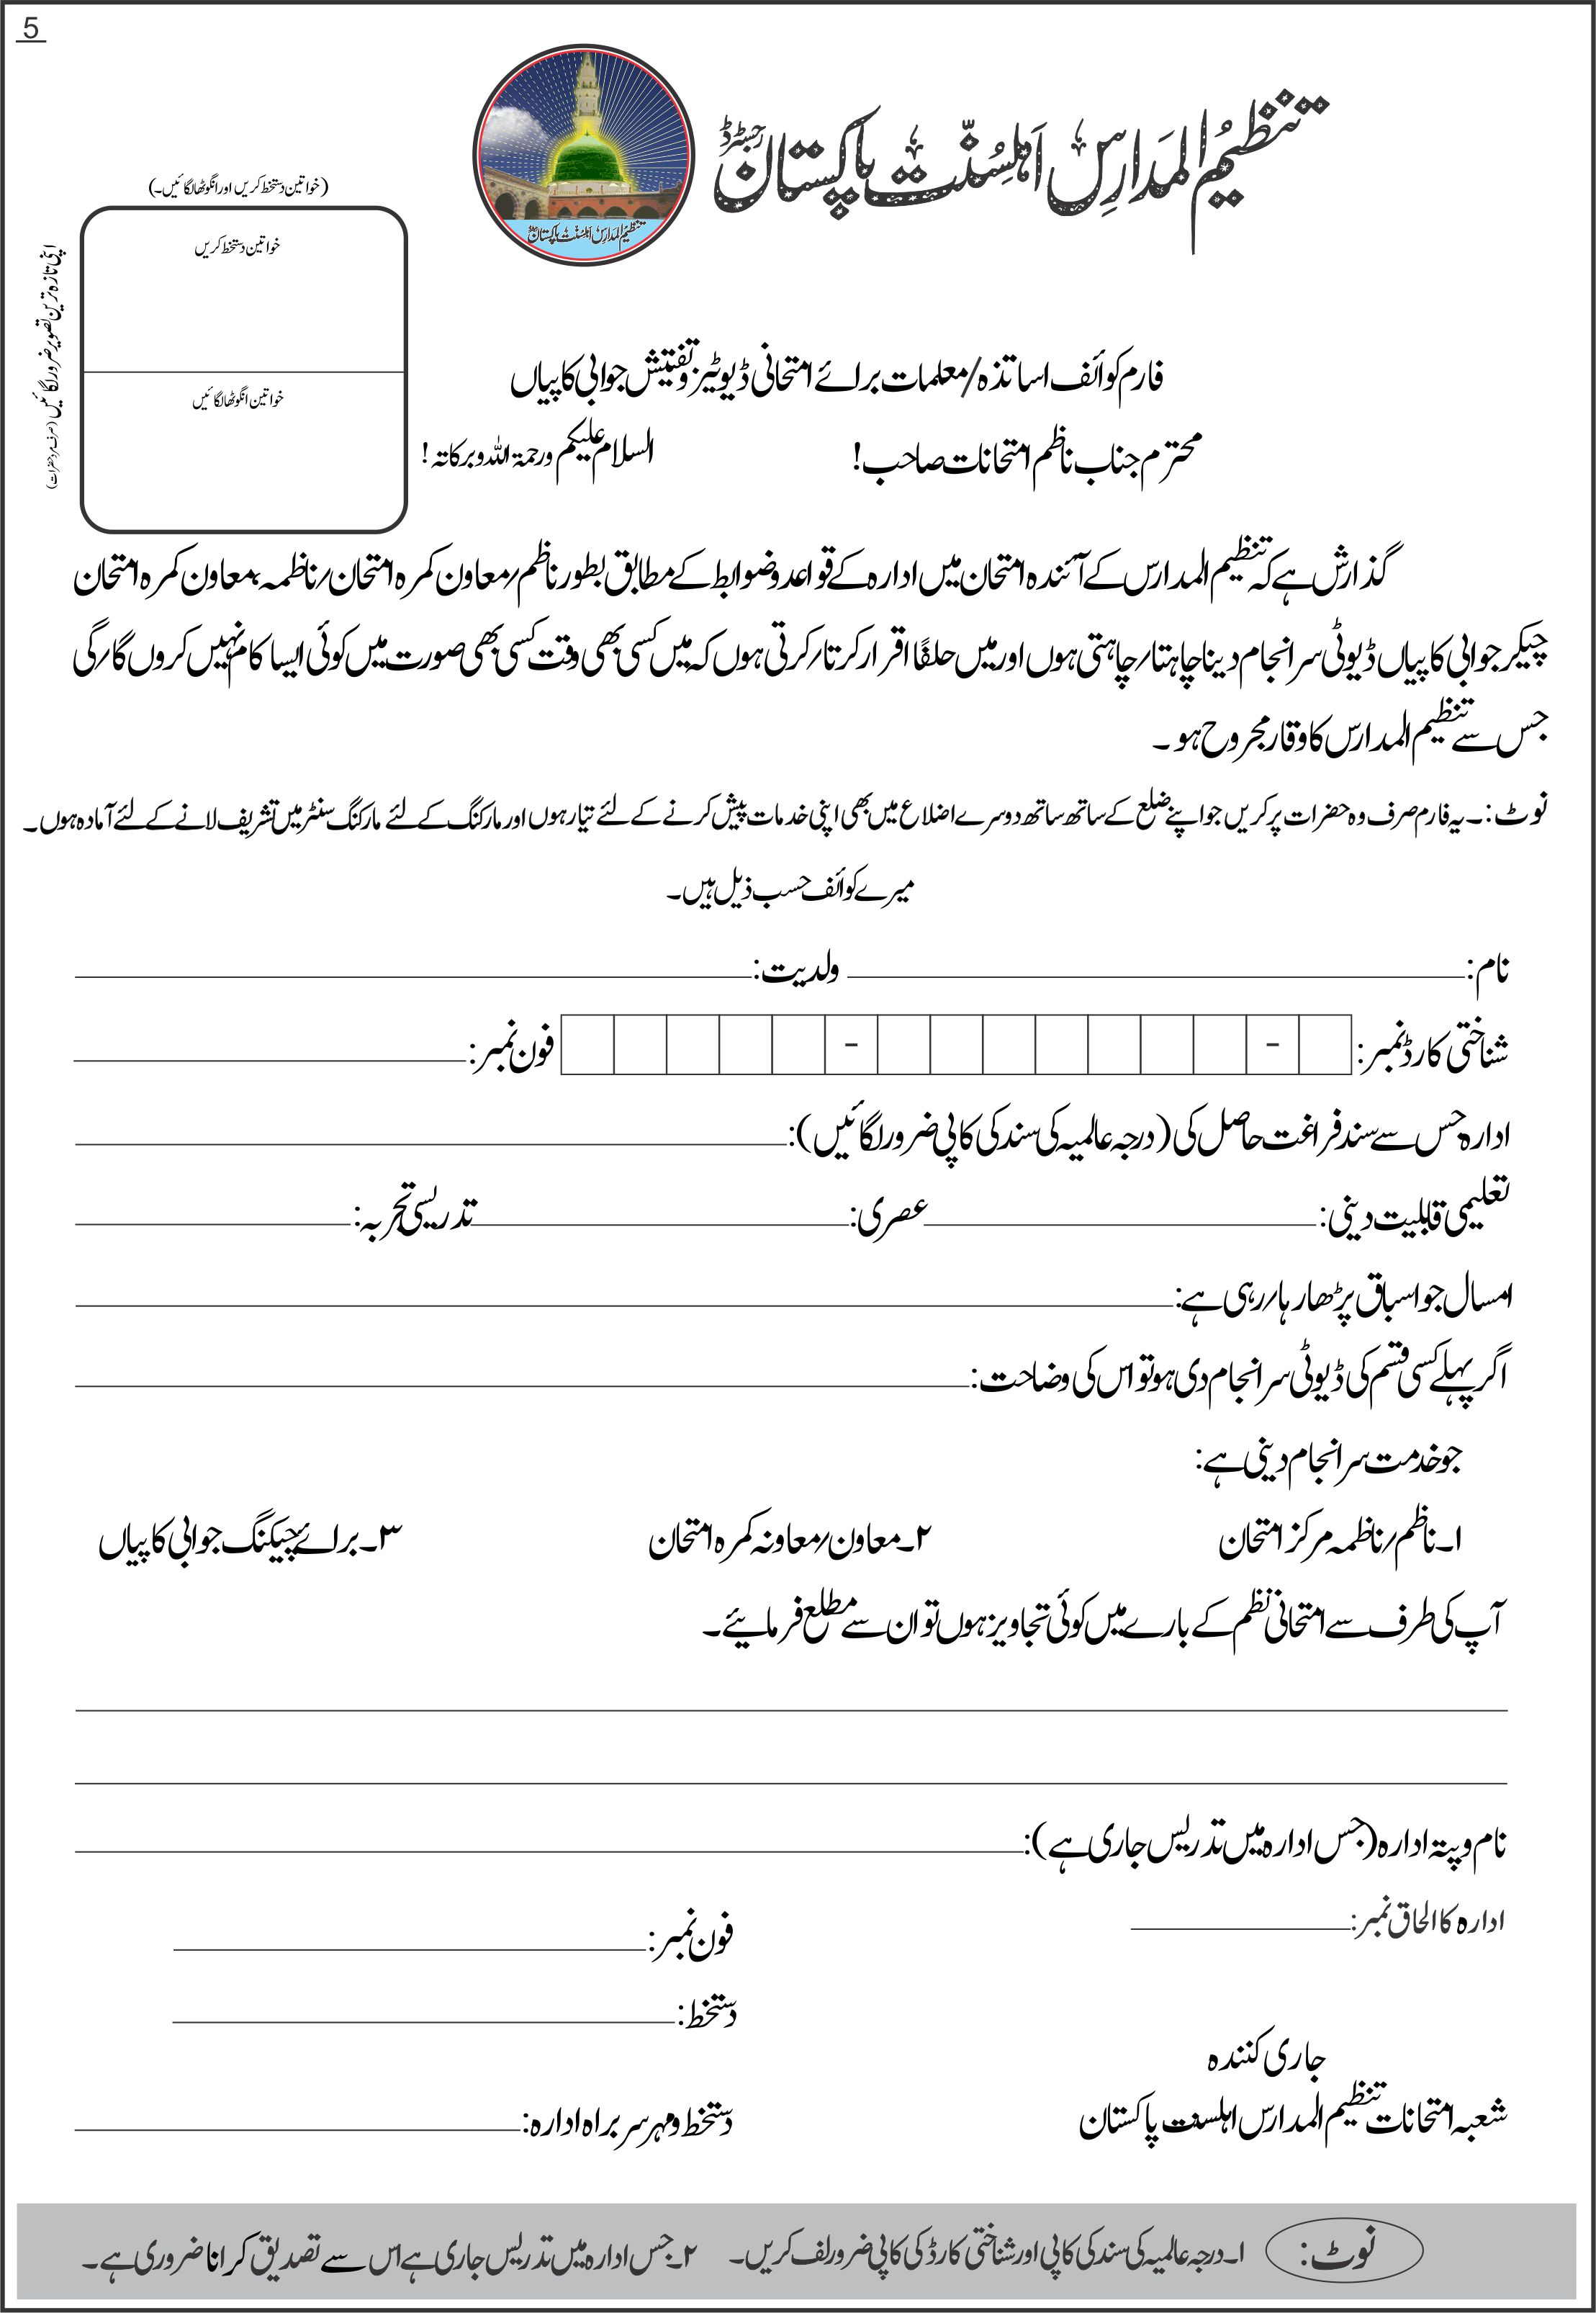 5
تنظیمُ المَدارِس اَہلِسُنّت پاکستان رجسٹرڈ
تنظیمُ المدارس اہلسنت پاکستان
(خواتین دستخط کریں اور انگوٹھا لگائیں۔)
خواتین دستخط کریں
خواتین انگوٹھا لگائیں
اپنی تازہ ترین تصویر ضرور لگائیں (صرف مرد حضرات)
فارم کوائف اساتذہ/معلمات برائے امتحانی ڈیوٹیز و تفتیش جوابی کاپیاں
محترم جناب ناظم امتحانات صاحب! السلام علیکم ورحمۃ اللہ وبرکاتہ!
گذارش ہے کہ تنظیم المدارس کے آئندہ امتحان میں ادارہ کے قواعد و ضوابط کے مطابق بطور ناظم/معاون کمرہ امتحان/ناظمہ، معاون کمرہ امتحان
چیکر جوابی کاپیاں ڈیوٹی سرانجام دینا چاہتا/چاہتی ہوں اور میں حلفًا اقرار کرتا/کرتی ہوں کہ میں کسی بھی وقت کسی بھی صورت میں کوئی ایسا کام نہیں کروں گا/گی
جس سے تنظیم المدارس کا وقار مجروح ہو۔
نوٹ:۔یہ فارم صرف وہ حضرات پر کریں جو اپنے ضلع کے ساتھ ساتھ دوسرے اضلاع میں بھی اپنی خدمات پیش کرنے کے لئے تیار ہوں اور مارکنگ کے لئے مارکنگ سنٹر میں تشریف لانے کے لئے آمادہ ہوں۔
میرے کوائف حسب ذیل ہیں۔
نام: ولدیت:
شناختی کارڈ نمبر: - - فون نمبر:
ادارہ جس سے سند فراغت حاصل کی (درجہ عالمیہ کی سند کی کاپی ضرور لگائیں):
تعلیمی قابلیت دینی: عصری: تدریسی تجربہ:
امسال جو اسباق پڑھا رہا/رہی ہے:
اگر پہلے کسی قسم کی ڈیوٹی سرانجام دی ہو تو اس کی وضاحت:
جو خدمت سرانجام دینی ہے:
۱۔ناظم/ناظمہ مرکز امتحان ۲۔معاون/معاونہ کمرہ امتحان ۳۔برائے چیکنگ جوابی کاپیاں
آپ کی طرف سے امتحانی نظم کے بارے میں کوئی تجاویز ہوں تو ان سے مطلع فرمائیے۔
نام و پتہ ادارہ (جس ادارہ میں تدریس جاری ہے):
ادارہ کا الحاق نمبر: فون نمبر:
دستخط:
جاری کنندہ
شعبہ امتحانات تنظیم المدارس اہلسنت پاکستان دستخط و مہر سربراہ ادارہ:
نوٹ: ۱۔درجہ عالمیہ کی سند کی کاپی اور شناختی کارڈ کی کاپی ضرور لف کریں۔ ۲۔جس ادارہ میں تدریس جاری ہے اس سے تصدیق کرانا ضروری ہے۔